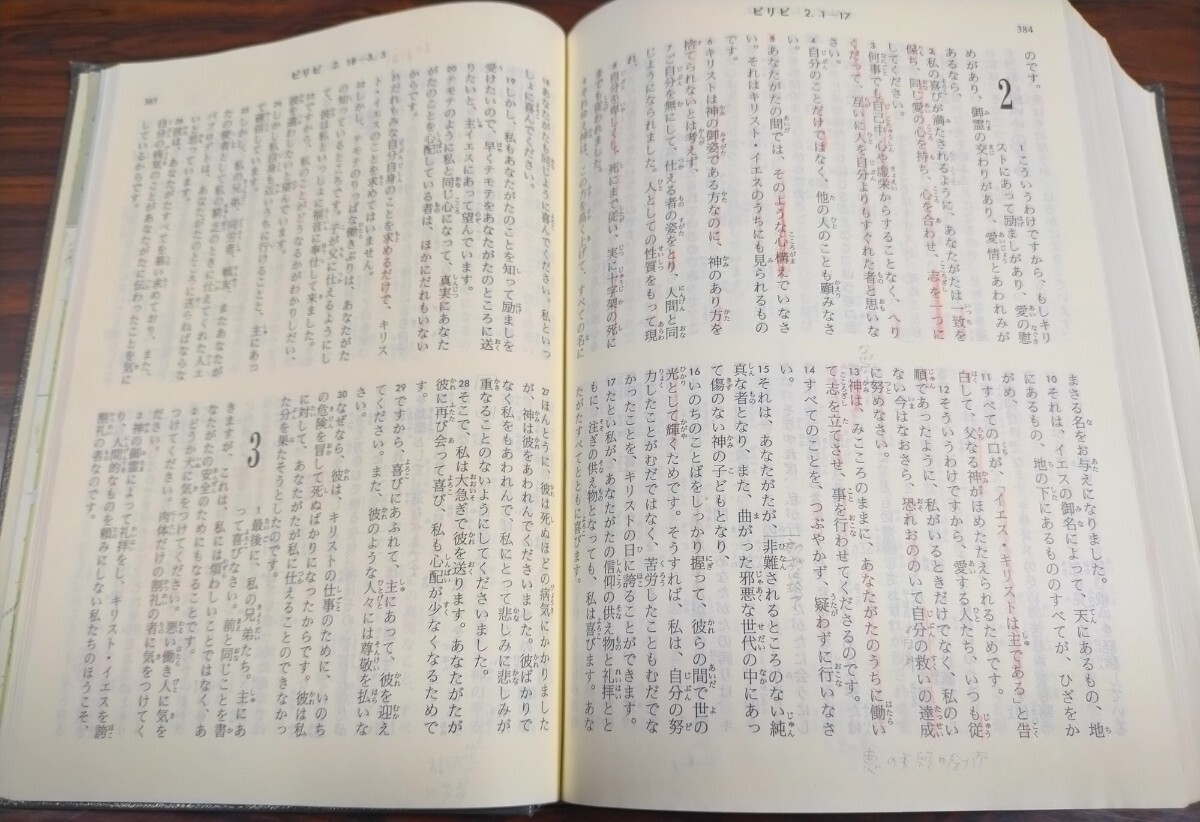 ピリピ 2. 1―17
384
のです。
2
1 こういうわけですから、もしキリ
ストにあって励ましがあり、愛の慰
めがあり、御霊の交わりがあり、愛情とあわれみが
あるなら、
2 私の喜びが満たされるように、あなたがたは一致を
保ち、同じ愛の心を持ち、心を合わせ、志を一つに
してください。
3 何事でも自己中心や虚栄からすることなく、へり
くだって、互いに人を自分よりもすぐれた者と思いな
さい。
4 自分のことだけではなく、他の人のことも顧みなさ
い。
5 あなたがたの間では、そのような心構えでいなさ
い。それはキリスト・イエスのうちにも見られるもの
です。
6 キリストは神の御姿である方なのに、神のあり方を
捨てられないとは考えず、
7 ご自分を無にして、仕える者の姿をとり、人間と同
じようになられました。人としての性質をもって現
れ、
8 自分を卑しくし、死にまで従い、実に十字架の死に
まで従われました。
9 それゆえ、神は、この方を高く上げて、すべての名に
まさる名をお与えになりました。
10 それは、イエスの御名によって、天にあるもの、地
にあるもの、地の下にあるもののすべてが、ひざをか
がめ、
11 すべての口が、「イエス・キリストは主である」と告
白して、父なる神がほめたたえられるためです。
12 そういうわけですから、愛する人たち、いつも従
順であったように、私がいるときだけでなく、私のい
ない今はなおさら、恐れおののいて自分の救いの達成
に努めなさい。
13 神は、みこころのままに、あなたがたのうちに働い
て志を立てさせ、事を行わせてくださるのです。
14 すべてのことを、つぶやかず、疑わずに行いなさ
い。
15 それは、あなたがたが、非難されるところのない純
真な者となり、また、曲がった邪悪な世代の中にあっ
て傷のない神の子どもとなり、
16 いのちのことばをしっかり握って、彼らの間で世の
光として輝くためです。そうすれば、私は、自分の努
力したことがむだではなく、苦労したこともむだでな
かったことを、キリストの日に誇ることができます。
17 たとい私が、あなたがたの信仰の供え物と礼拝とと
もに、注ぎの供え物となっても、私は喜びます。あな
たがたすべてとともに喜びます。
ピリピ 2. 18―3. 3
385
18 あなたがたも同じように喜んでください。私といっ
しょに喜んでください。
19 しかし、私もあなたがたのことを知って励ましを
受けたいので、早くテモテをあなたがたのところに送
りたいと、主イエスにあって望んでいます。
20 テモテのように私と同じ心になって、真実にあなた
がたのことを心配している者は、ほかにだれもいない
からです。
21 だれもみな自分自身のことを求めるだけで、キリス
ト・イエスのことを求めてはいません。
22 しかし、テモテのりっぱな働きぶりは、あなたがた
の知っているところです。子が父に仕えるようにし
て、彼は私といっしょに福音に奉仕して来ました。
23 ですから、私のことがどうなるかがわかりしだい、
彼を遣わしたいと望んでいます。
24 しかし私自身も近いうちに行けることと、主にあっ
て確信しています。
25 しかし、私の兄弟、同労者、戦友、またあなたがた
の使者として私の窮乏のときに仕えてくれた人エ
パフロデトは、あなたがたのところに送らねばならな
いと思っています。
26 彼は、あなたがたすべてを慕い求めており、また、
自分の病気のことがあなたがたに伝わったことを気に
しているからです。
27 ほんとうに、彼は死ぬほどの病気にかかりました
が、神は彼をあわれんでくださいました。彼ばかりで
なく私をもあわれんで、私にとって悲しみに悲しみが
重なることのないようにしてくださいました。
28 そこで、私は大急ぎで彼を送ります。あなたがたが
彼に再び会って喜び、私も心配が少なくなるためで
す。
29 ですから、喜びにあふれて、主にあって、彼を迎え
てください。また、彼のような人々には尊敬を払いな
さい。
30 なぜなら、彼は、キリストの仕事のために、いのち
の危険を冒して死ぬばかりになったからです。彼は私
に対して、あなたがたが私に仕えることのできなかっ
た分を果たそうとしたのです。
3
1 最後に、私の兄弟たち。主にあ
って喜びなさい。前と同じことを書
きますが、これは、私には煩わしいことではなく、あ
なたがたの安全のためにもなることです。
2 どうか犬に気をつけてください。悪い働き人に気を
つけてください。肉体だけの割礼の者に気をつけてく
ださい。
3 神の御霊によって礼拝をし、キリスト・イエスを誇
り、人間的なものを頼みにしない私たちのほうこそ、
割礼の者なのです。